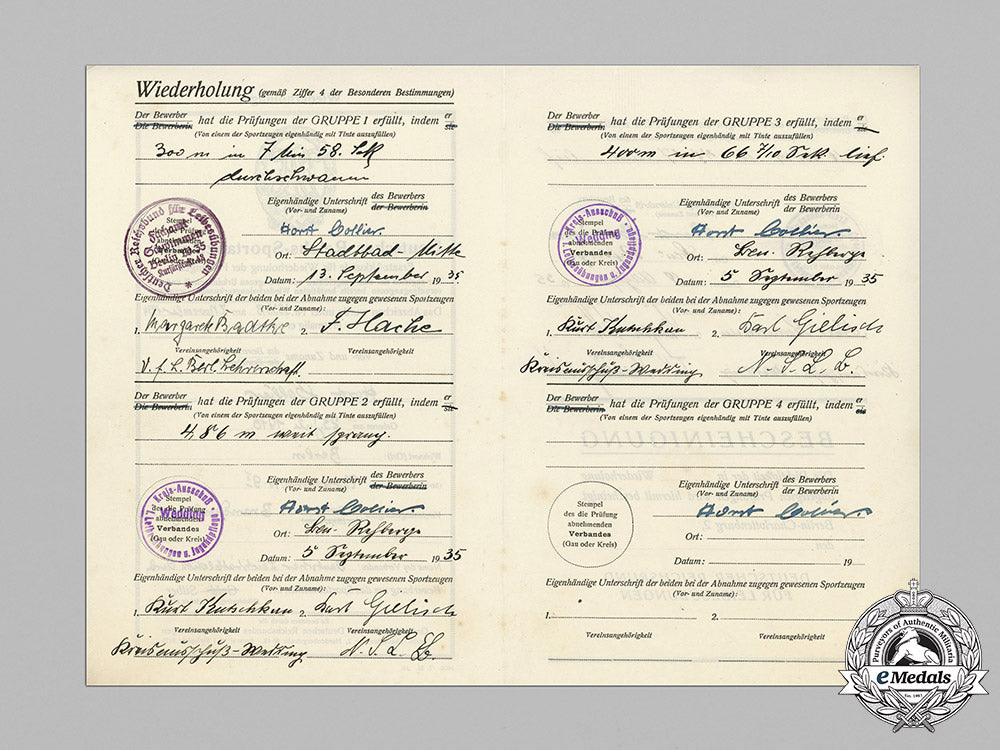 Wiederholung (gemäß Ziffer 4 der Besonderen Bestimmungen)
Der Bewerber
Die Bewerberin
hat die Prüfungen der GRUPPE 1 erfüllt, indem er
sie
(Von einem der Sportzeugen eigenhändig mit Tinte auszufüllen)
300 m in 7 Min 58. Sek
durchschwamm
Eigenhändige Unterschrift des Bewerbers
der Bewerberin
(Vor- und Zuname)
Stempel
des die Prüfung
abnehmenden
Verbandes
Deutscher Reichsbund für Leibesübungen
Horst Collier
Ort: Stadtbad-Mitte
Datum: 13. September 1935.
Eigenhändige Unterschrift der beiden bei der Abnahme zugegen gewesenen Sportzeugen
(Vor- und Zuname):
1. Margarete Badtke 2. F. Hache
Vereinsangehörigkeit Vereinsangehörigkeit
V. f. L. Berl. Lehrerschaft.
Der Bewerber
Die Bewerberin
hat die Prüfungen der GRUPPE 2 erfüllt, indem er
sie
(Von einem der Sportzeugen eigenhändig mit Tinte auszufüllen)
4,86 m weit sprang.
Eigenhändige Unterschrift des Bewerbers
der Bewerberin
(Vor- und Zuname)
Kreis-Ausschuß
Stempel
des die Prüfung
Wedding
abnehmenden
Verbandes
(Gau oder Kreis)
f. Leibesübungen u. Jugendpflege
Horst Collier
Ort: Len. Rehberge
Datum: 5 September 1935
Eigenhändige Unterschrift der beiden bei der Abnahme zugegen gewesenen Sportzeugen
(Vor- und Zuname):
1. Kurt 2. Karl Gielisch
Vereinsangehörigkeit Vereinsangehörigkeit
Kreisausschuß-Wedding N. S. L. B.
Der Bewerber
Die Bewerberin
hat die Prüfungen der GRUPPE 3 erfüllt, indem er
sie
(Von einem der Sportzeugen eigenhändig mit Tinte auszufüllen)
400 m in 66 7/10 Sek. lief.
Eigenhändige Unterschrift des Bewerbers
der Bewerberin
(Vor- und Zuname)
Kreis-Ausschuß
Stempel
des die Prüfung
Wedding
abnehmenden
Verbandes
(Gau oder Kreis)
f. Leibesübungen u. Jugendpflege
Horst Collier
Ort: Len. Rehberge
Datum: 5 September 1935
Eigenhändige Unterschrift der beiden bei der Abnahme zugegen gewesenen Sportzeugen
(Vor- und Zuname):
1. Kurt 2. Karl Gielisch
Vereinsangehörigkeit Vereinsangehörigkeit
Kreisausschuß-Wedding N. S. L. B.
Der Bewerber
Die Bewerberin
hat die Prüfungen der GRUPPE 4 erfüllt, indem er
sie
(Von einem der Sportzeugen eigenhändig mit Tinte auszufüllen)
Eigenhändige Unterschrift des Bewerbers
der Bewerberin
(Vor- und Zuname)
Stempel
des die Prüfung
abnehmenden
Verbandes
(Gau oder Kreis)
Horst Collier
Ort:
Datum: 19
Eigenhändige Unterschrift der beiden bei der Abnahme zugegen gewesenen Sportzeugen
(Vor- und Zuname):
1. 2.
Vereinsangehörigkeit Vereinsangehörigkeit
Purveyors of Authentic Militaria
eMedals